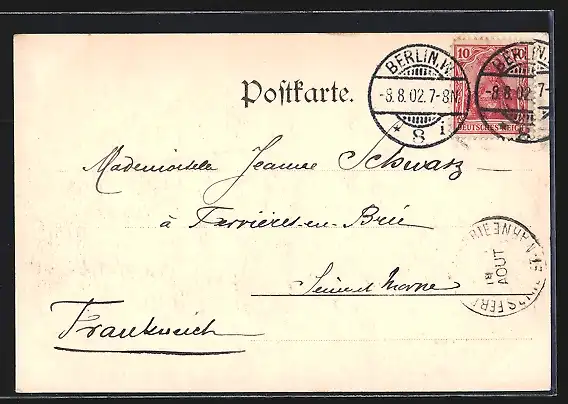 Postkarte.
BERLIN.W.
-8.8.02.7-8N.
* 8 i
10 10
DEUTSCHES REICH
BERLIN.W.
-8.8.02.7-
Mademoiselle Jeanne Schwarz
à Ferrières-en-Brie
AOUT
Seine et Marne
Frankreich